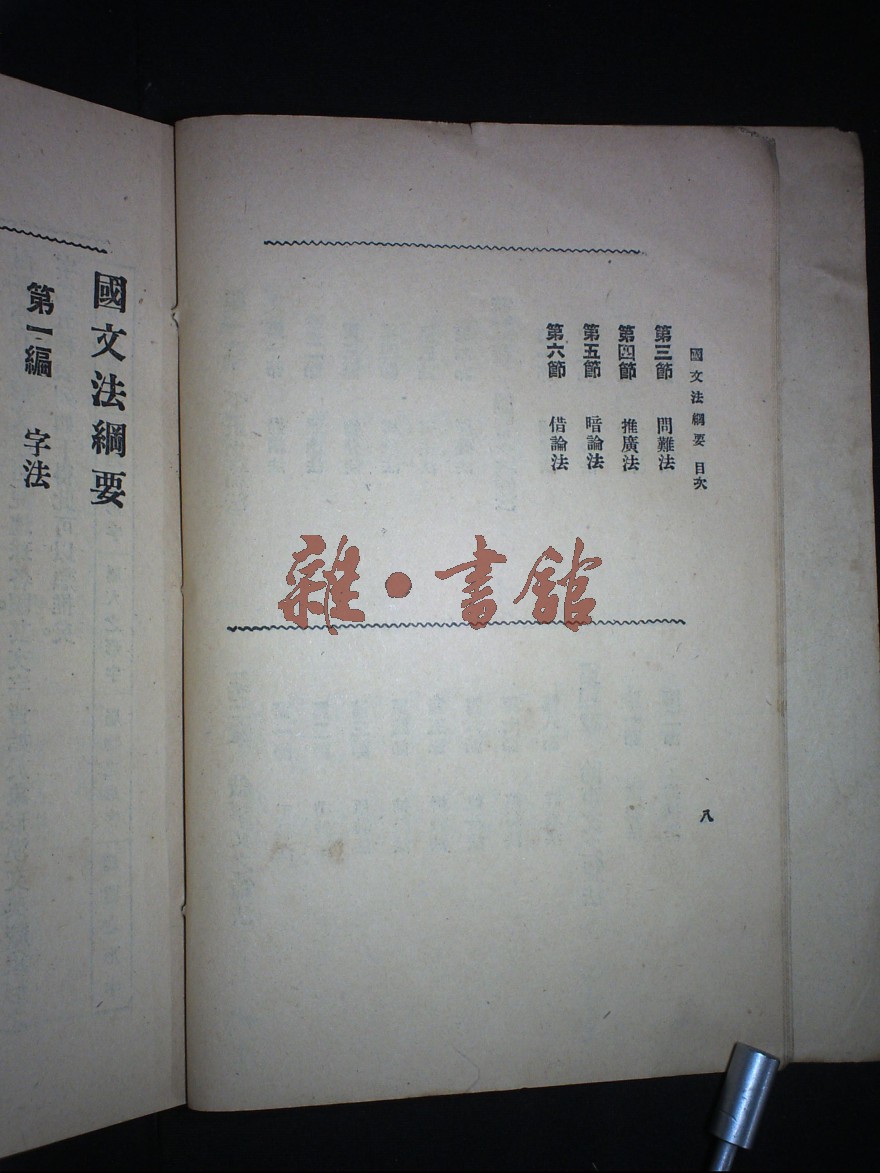 國文法綱要 目次
八
第三節 問難法
第四節 推廣法
第五節 暗論法
第六節 借論法
雜·書館
國文法綱要
第一編 字法